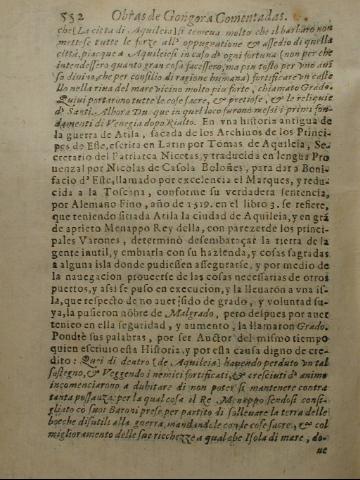 552 Obras de Gongora Comentadas.
che (La citta di Aquileia) si temeua molto che il barbaro non
mettesse tutte le forze all' oppugnatione & assedio di quella
città, piacque a Aquileiesi in caso d' ogni fortuna (non per che
intendessero quanto gran cosa facessero, ma piu tosto per vno aui
so diuino, che per consilio di ragione humana) fortificare vn caste
llo nella riua del mare vicino molto piu forte, chiamato Grado.
Quiui portarono tutte le cose sacre, & pretiose, & le reliquie
di Santi. Albora Du que in quel loco furono messi i primi fon
damenti di Venetia dopo Rialto. En vna historia antigua de
la guerra de Atila, sacada de los Archiuos de los Princi-
pes de Este, escrita en Latin por Tomas de Aquileia, Se-
cretario del Patriarca Nicetas, y traducida en lengua Pro
uenzal por Nicolas de Casola Boloñes, para dar a Boni-
facio d' Este, llamado por excelencia el Marques, y redu-
cida a la Toscana, conforme su verdadera sentencia,
por Alemano Fino, año de 1519. en el libro 3. se refiere,
que teniendo sitiada Atila la ciudad de Aquileia, y en grã
de aprieto Menappo Rey della, con parezer de los princi-
pales Varones, determinò desembaraçar la tierra de la
gente inutil, y embiarla con su hazienda, y cosas sagradas
a alguna isla donde pudiessen assegurarse, y por medio de
la nauegacion proueerse de las cosas necesarias de otros
puertos, y assi se puso en execucion, y la lleuaròn a vna is-
la, que respecto de no auer sido de grado, y voluntad su-
ya, la pusieron nõbre de Malgrado, pero despues por auer
tenido en ella seguridad, y aumento, la llamaron Grado.
Pondrè sus palabras, por ser Auctor del mismo tiempo
quien escriuio esta Historia, y por esta causa digno de cre-
dito: Quei di dentro (de Aquileia) hauendo perduto vn tal
sostegno, & Veggendo i nemici fortificati, & cresciuti d' animo
incomenciarono a dubitare di non poter si mantenere contra
tanta possanza: per la qual cosa il Re Menappo sendosi consi-
gliato co suoi Baroni prese per partito di solleuare la terra delle
bocche disutili alla guerra, mandandole con le cose sacre, & col
miglioramento delle sue ricchezze a qualche Isola di mare, do-
ue